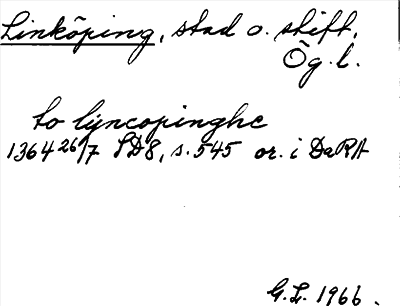 Linköping, stad o. stift,
Ög.l.
to lyncopinghe
1364 26/7 SD8, s.545 or. i DaRA
G.L. 1966.